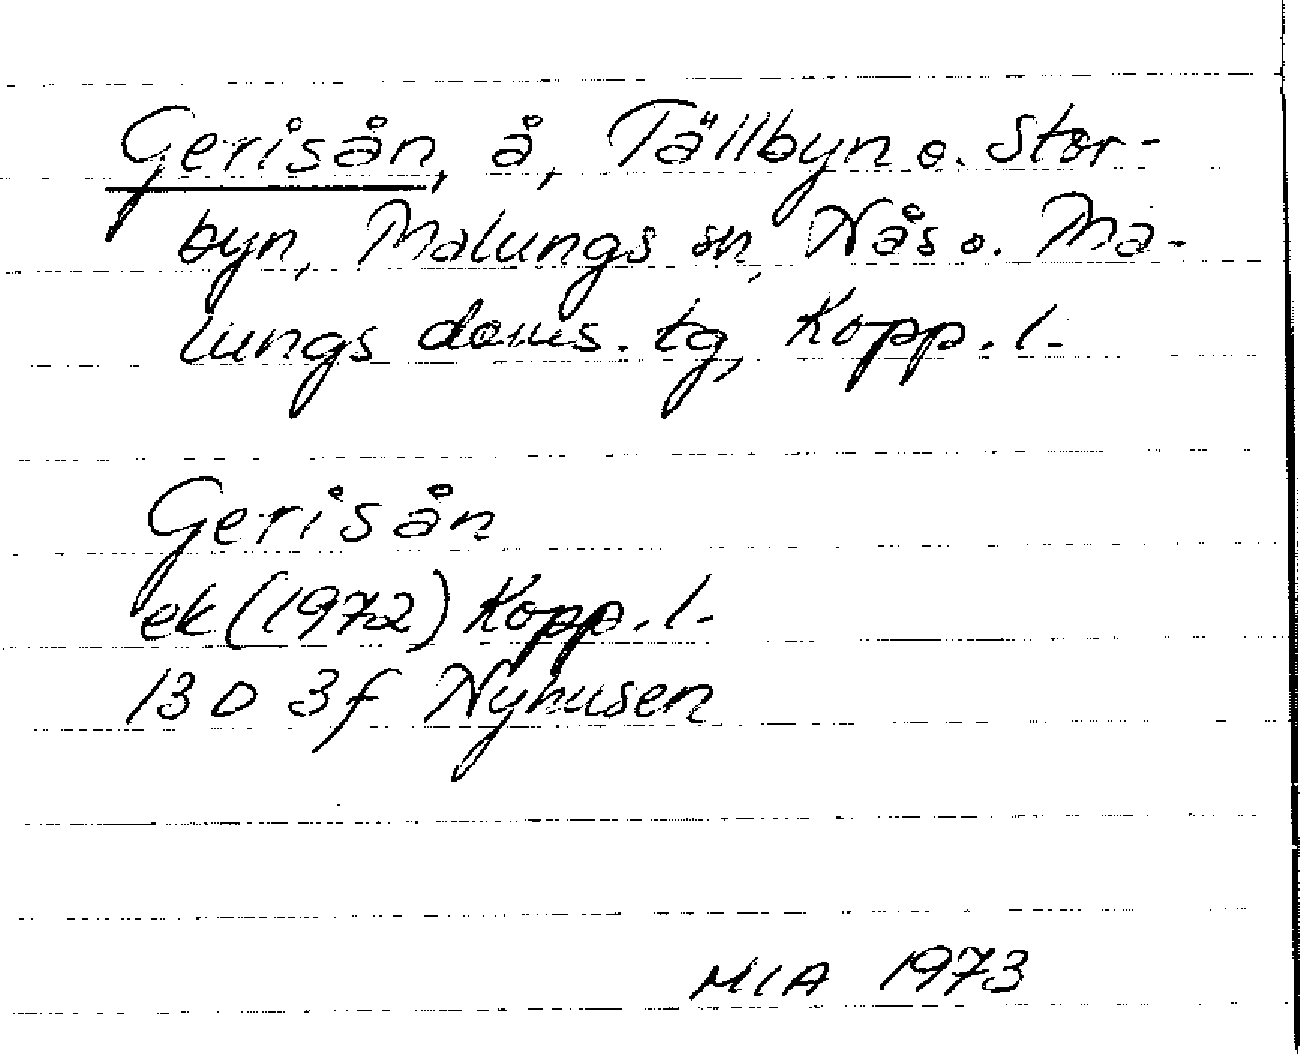 Gerisån, å, Tällbyn o. Stor-
byn, Malungs sn, Nås o. Ma-
lungs doms. tg, Kopp. l.
Gerisån
ek (1972) Kopp. l.
13 D 3f Nyhusen
MIA 1973